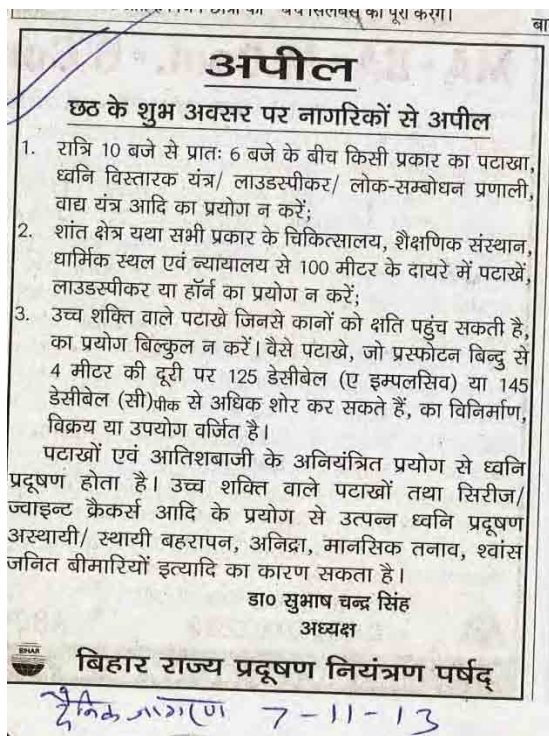 सिलेबस को पूरा करेंगे।
बा
अपील
छठ के शुभ अवसर पर नागरिकों से अपील
1. रात्रि 10 बजे से प्रातः 6 बजे के बीच किसी प्रकार का पटाखा,
ध्वनि विस्तारक यंत्र/ लाउडस्पीकर/ लोक-सम्बोधन प्रणाली,
वाद्य यंत्र आदि का प्रयोग न करें;
2. शांत क्षेत्र यथा सभी प्रकार के चिकित्सालय, शैक्षणिक संस्थान,
धार्मिक स्थल एवं न्यायालय से 100 मीटर के दायरे में पटाखें,
लाउडस्पीकर या हॉर्न का प्रयोग न करें;
3. उच्च शक्ति वाले पटाखे जिनसे कानों को क्षति पहुंच सकती है,
का प्रयोग बिल्कुल न करें। वैसे पटाखे, जो प्रस्फोटन बिन्दु से
4 मीटर की दूरी पर 125 डेसीबेल (ए इम्पलसिव) या 145
डेसीबेल (सी)पीक से अधिक शोर कर सकते हैं, का विनिर्माण,
विक्रय या उपयोग वर्जित है।
पटाखों एवं आतिशबाजी के अनियंत्रित प्रयोग से ध्वनि
प्रदूषण होता है। उच्च शक्ति वाले पटाखों तथा सिरीज/
ज्वाइन्ट क्रैकर्स आदि के प्रयोग से उत्पन्न ध्वनि प्रदूषण
अस्थायी/ स्थायी बहरापन, अनिद्रा, मानसिक तनाव, श्वांस
जनित बीमारियों इत्यादि का कारण सकता है।
डा० सुभाष चन्द्र सिंह
अध्यक्ष
BIHAR
बिहार राज्य प्रदूषण नियंत्रण पर्षद्
दैनिक जागरण 7-11-13